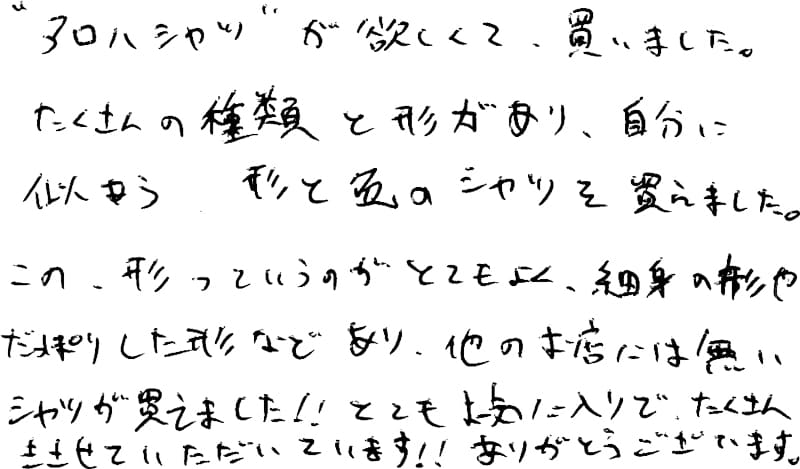 "アロハシャツ"が欲しくて、買いました。
たくさんの種類と形があり、自分に
似あう 形と色のシャツを買えました。
この、形っていうのがとてもよく、細身の形や
だっぽりした形などあり、他のお店には無い
シャツが買えました!! とてもお気に入りで、たくさん
きさせていただいています!! ありがとうございます。